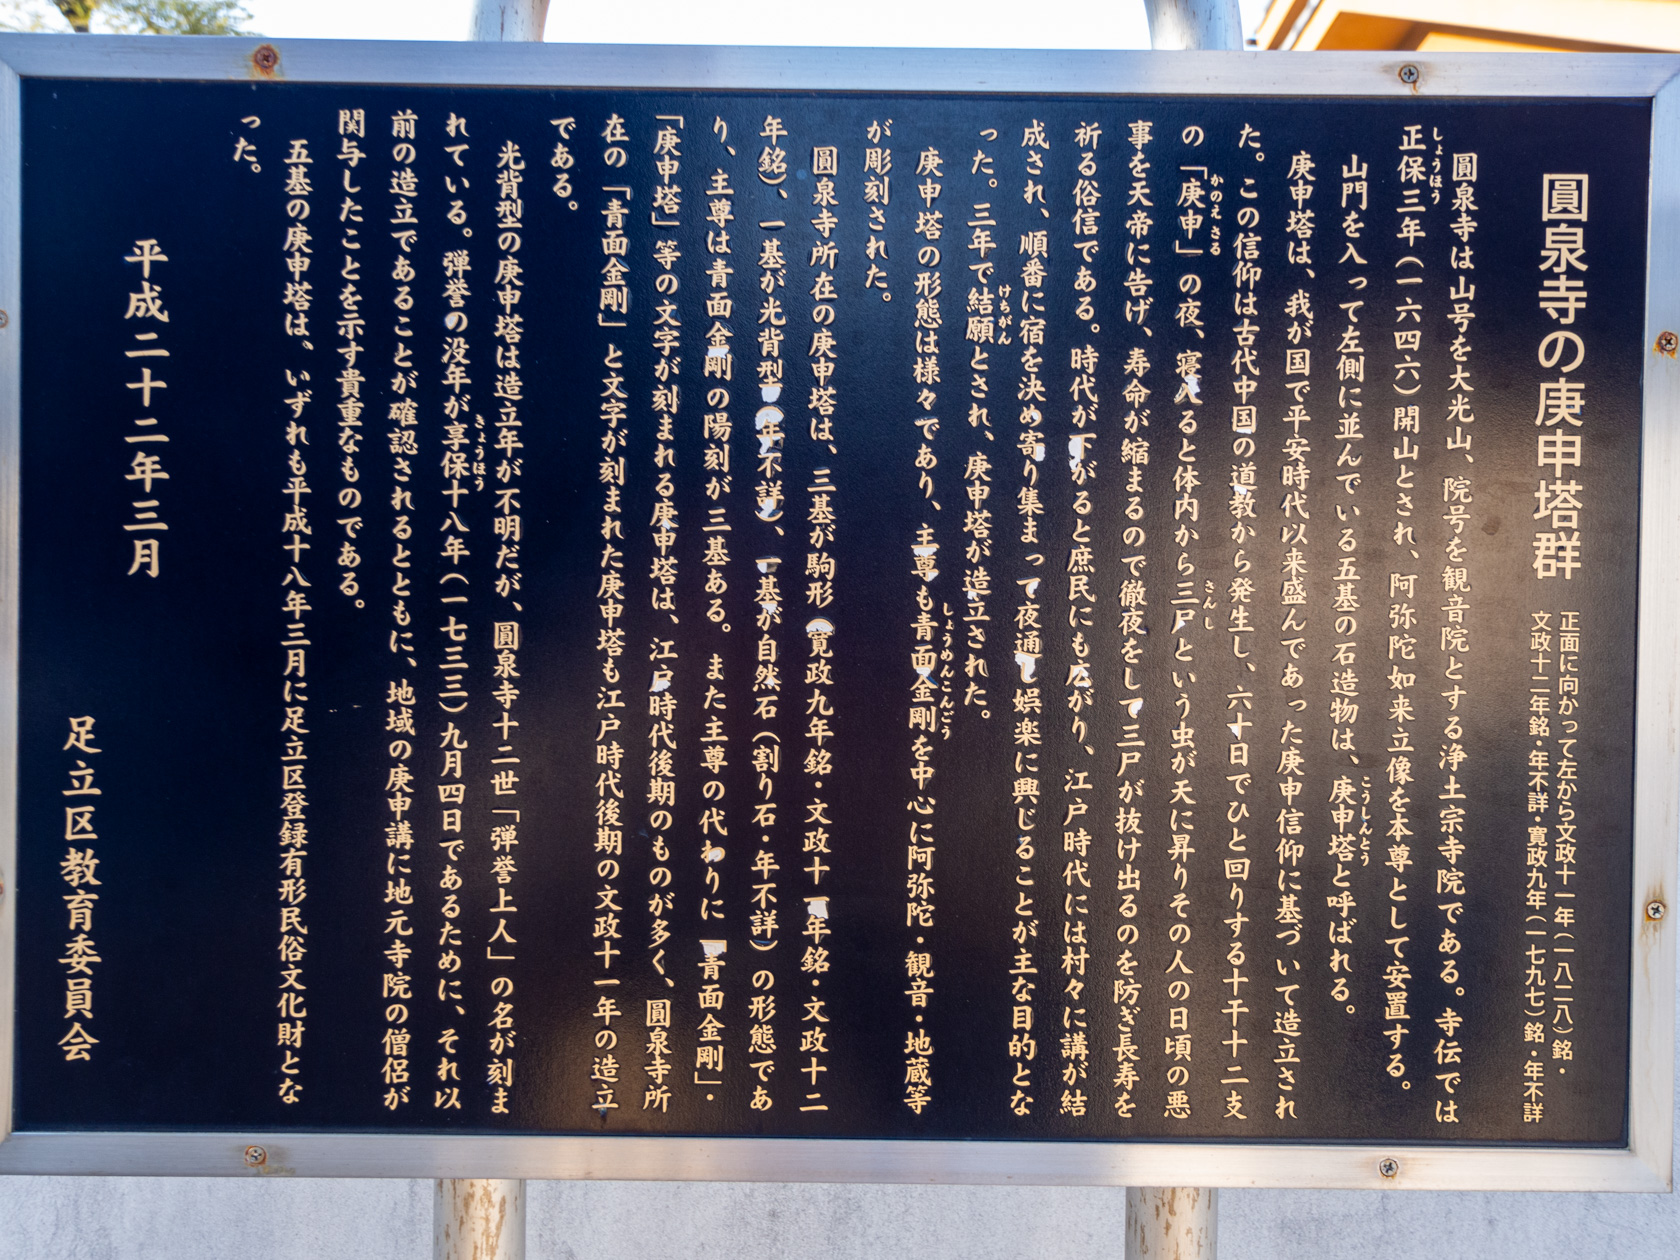 圓泉寺の庚申塔群
正面に向かって左から文政十一年（一八二八）銘・
文政十二年銘・年不詳・寛政九年（一七九七）銘・年不詳
圓泉寺は山号を大光山、院号を観音院とする浄土宗寺院である。寺伝では
しょうほう
正保三年（一六四六）開山とされ、阿弥陀如来立像を本尊として安置する。
山門を入って左側に並んでいる五基の石造物は、庚申塔と呼ばれる。
こうしんとう
庚申塔は、我が国で平安時代以来盛んであった庚申信仰に基づいて造立され
た。この信仰は古代中国の道教から発生し、六十日でひと回りする十干十二支
かのえさる
の「庚申」の夜、寝入ると体内から三尸という虫が天に昇りその人の日頃の悪
さんし
事を天帝に告げ、寿命が縮まるので徹夜をして三尸が抜け出るのを防ぎ長寿を
祈る俗信である。時代が下がると庶民にも広がり、江戸時代には村々に講が結
成され、順番に宿を決め寄り集まって夜通し娯楽に興じることが主な目的とな
けちがん
った。三年で結願とされ、庚申塔が造立された。
しょうめんこんごう
庚申塔の形態は様々であり、主尊も青面金剛を中心に阿弥陀・観音・地蔵等
が彫刻された。
圓泉寺所在の庚申塔は、三基が駒形（寛政九年銘・文政十一年銘・文政十二
年銘）、一基が光背型（年不詳）、一基が自然石（割り石・年不詳）の形態であ
り、主尊は青面金剛の陽刻が三基ある。また主尊の代わりに「青面金剛」・
「庚申塔」等の文字が刻まれる庚申塔は、江戸時代後期のものが多く、圓泉寺所
在の「青面金剛」と文字が刻まれた庚申塔も江戸時代後期の文政十一年の造立
である。
光背型の庚申塔は造立年が不明だが、圓泉寺十二世「弾誉上人」の名が刻ま
きょうほう
れている。弾誉の没年が享保十八年（一七三三）九月四日であるために、それ以
前の造立であることが確認されるとともに、地域の庚申講に地元寺院の僧侶が
関与したことを示す貴重なものである。
五基の庚申塔は、いずれも平成十八年三月に足立区登録有形民俗文化財とな
った。
平成二十二年三月
足立区教育委員会